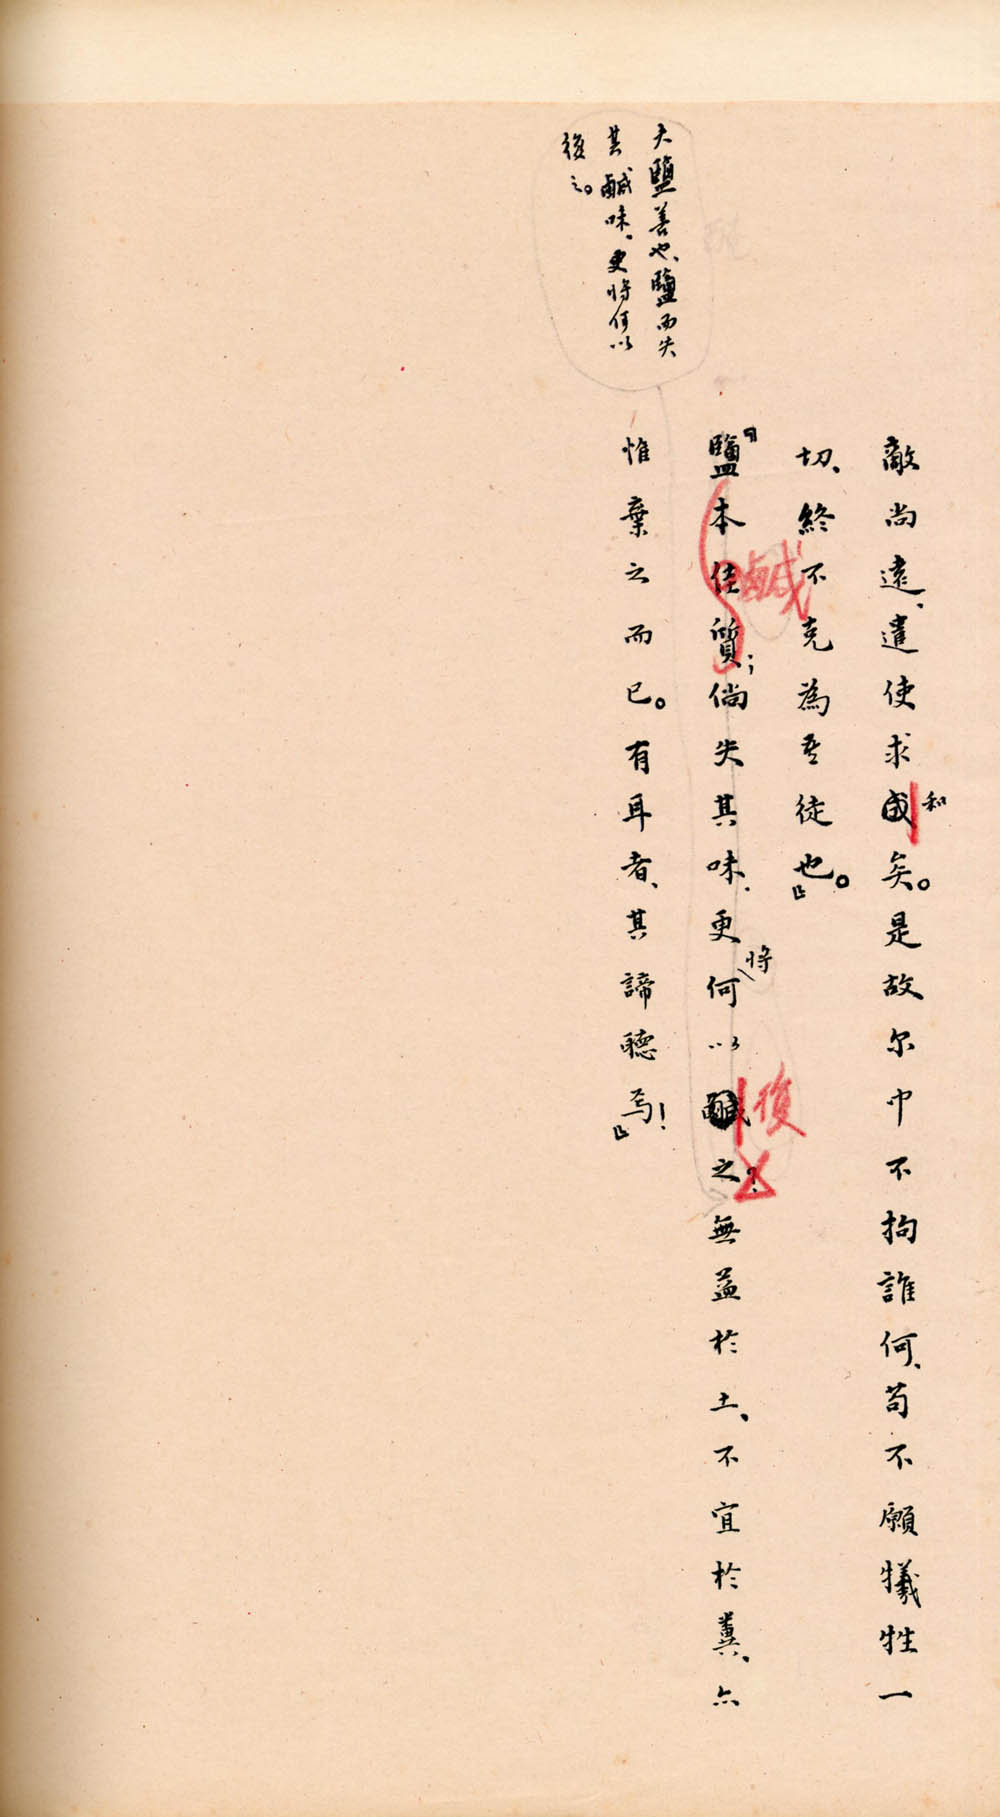 夫鹽善也、鹽而失
其鹹味、更將何以
復之。
敵尚遠、遣使求成矣。是故尔中不拘誰何、苟不願犧牲一
和
切、終不克為吾徒也。』
鹹
『鹽本佳質；倘失其味、更何以鹹之？無益於土、不宜於糞、亦
將
復
惟棄之而已。有耳者、其諦聽焉！』